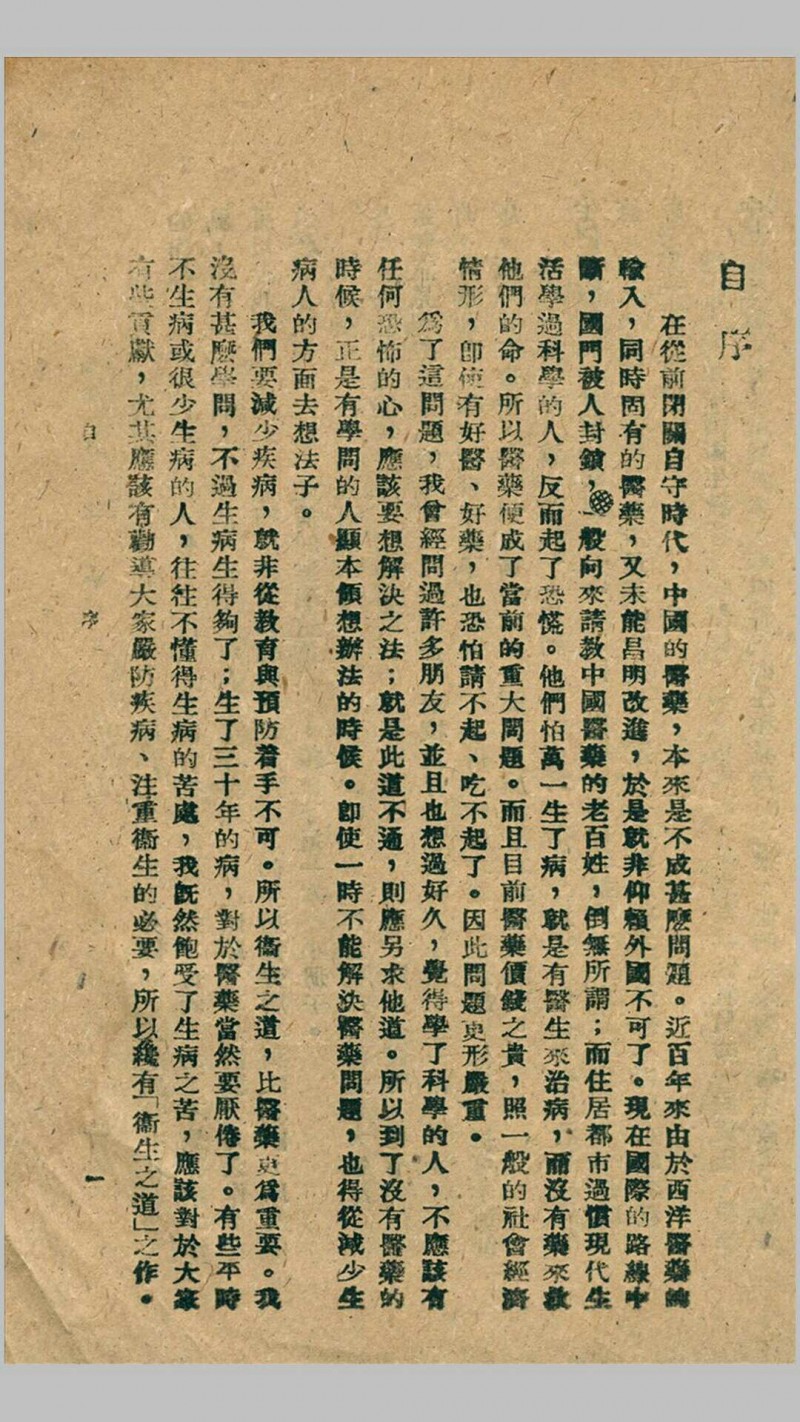 自序
在從前閉關自守時代，中國的醫藥，本來是不成甚麽問題。近百年來由於西洋醫藥的
輸入，同時固有的醫藥，又未能昌明改進，於是就非仰賴外國不可了。現在國際的路線中
斷，國門被人封鎖，一般向來請教中國醫藥的老百姓，倒無所謂；而住居都市過慣現代生
活學過科學的人，反而起了恐慌。他們怕萬一生了病，就是有醫生來治病，而沒有藥來救
他們的命。所以醫藥便成了當前的重大問題。而且目前醫藥價錢之貴，照一般的社會經濟
情形，卽使有好醫、好藥，也恐怕請不起、吃不起了。因此問題更形嚴重。
爲了這問題，我曾經問過許多朋友，並且也想過好久，覺得學了科學的人，不應該有
任何恐怖的心，應該要想解決之法；就是此道不通，則應另求他道。所以到了沒有醫藥的
時候，正是有學問的人顯本領想辦法的時候。卽使一時不能解決醫藥問題，也得從減少生
病人的方面去想法子。
我們要減少疾病，就非從教育與預防着手不可。所以衞生之道，比醫藥更爲重要。我
沒有甚麽學問，不過生病生得夠了；生了三十年的病，對於醫藥當然要厭倦了。有些平時
不生病或很少生病的人，往往不懂得生病的苦處，我旣然飽受了生病之苦，應該對於大家
有些貢獻，尤其應該有勸導大家嚴防疾病、注重衞生的必要，所以纔有「衞生之道」之作。
自序
一